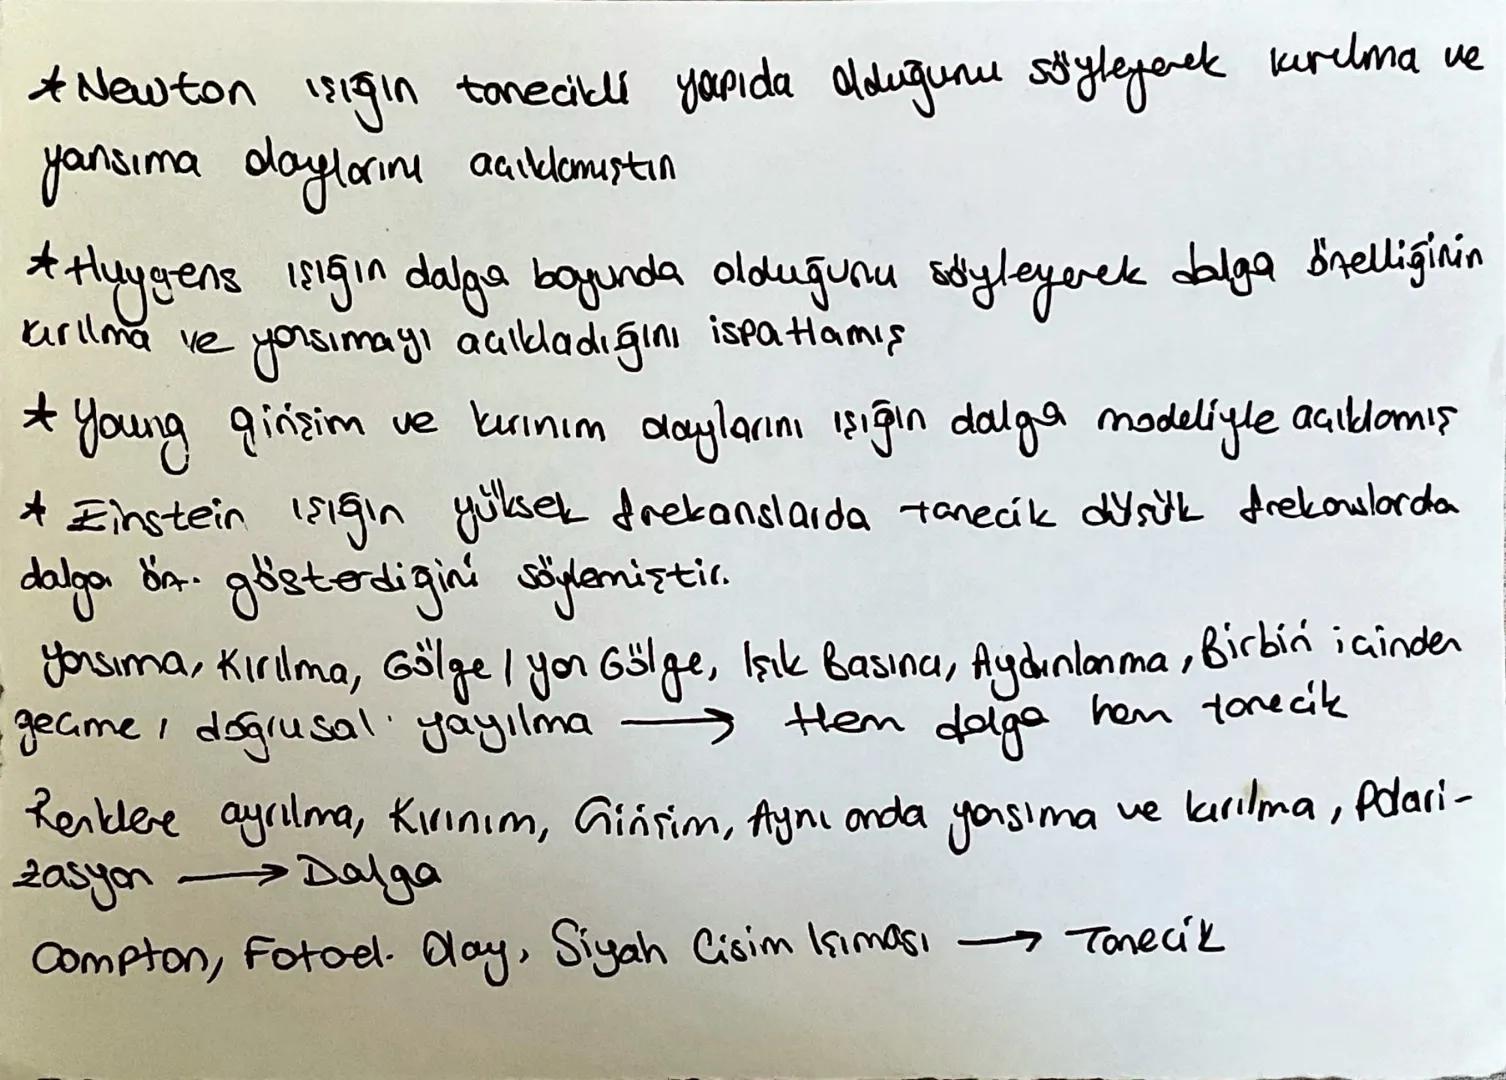 * Newton ışığın tanecikli yapıda olduğunu söyleyerek kırılma ve
yansıma olaylarını açıklamıştın
* Huygens ışığın dalga boyunda olduğunu söyleyerek dalga özelliğinin
kırılma ve yansımayı açıkladığını ispatlamış
* Young girişim ve kırınım olaylarını ışığın dalga modeliyle açıklamış
* Einstein ışığın yüksek frekanslarda tanecik düşük frekanslarda
dalga öz. gösterdiğini söylemiştir.
Yansıma, Kırılma, Gölge / yarı Gölge, Işık Basıncı, Aydınlanma, Birbiri içinden
geçme, doğrusal yayılma → Hem dalga hem tanecik
Renklere ayrılma, Kırınım, Girişim, Aynı anda yansıma ve kırılma, Polari-
zasyon → Dalga
Compton, Fotoel. Olay, Siyah Cisim Işıması → Tanecik